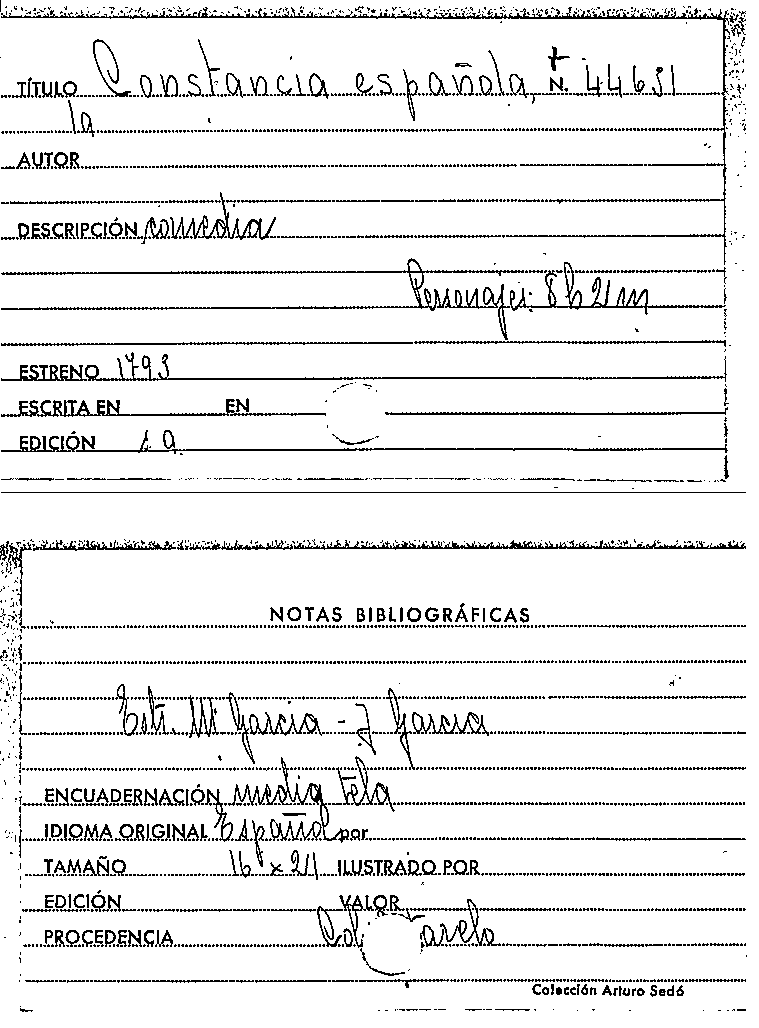 TÍTULO Constancia española, + N. 44651
la
AUTOR
DESCRIPCIÓN comedia
Personajes: 8 h 2 m
ESTRENO 1793
ESCRITA EN EN
EDICIÓN s a
NOTAS BIBLIOGRÁFICAS
Estr. Mª Garcia - J Garcia
ENCUADERNACIÓN media tela
IDIOMA ORIGINAL Español por
TAMAÑO 16 x 21 ILUSTRADO POR
EDICIÓN VALOR
PROCEDENCIA
Colección Arturo Sedó